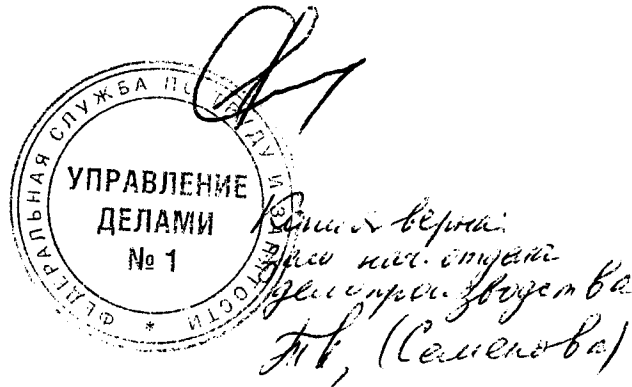 ФЕДЕРАЛЬНАЯ СЛУЖБА ПО ТРУДУ И ЗАНЯТОСТИ *
УПРАВЛЕНИЕ
ДЕЛАМИ
№ 1
Копия верна:
нач. отдела
делопроизводства
(Семенова)